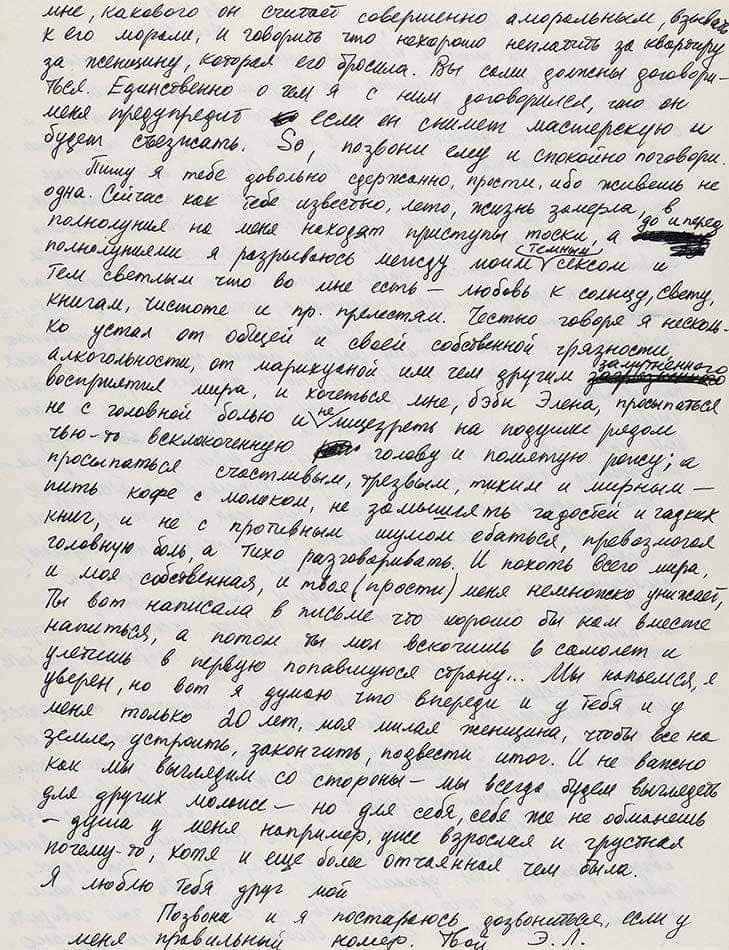 мне, какового он считает совершенно аморальным, взывать
к его морали, и говорить что нехорошо неплатить за квартиру
за женщину, которая его бросила. Вы сами должны договори-
ться. Единственно о чем я с ним договорился, что он
меня предупредит если он снимет мастерскую и
будет съезжать. So, позвони ему и спокойно поговори.
Пишу я тебе довольно сдержанно, прости, ибо живешь не
одна. Сейчас как тебе известно, лето, жизнь замерла, в
полнолуния на меня находят приступы тоски, а до и перед
полнолуниями я разрываюсь между моим темным сексом и
тем светлым что во мне есть — любовь к солнцу, свету,
книгам, чистоте и пр. прелестям. Честно говоря я несколь-
ко устал от общей и своей собственной грязности,
алкогольности, от марихуаной или чем другим замутнённого
восприятия мира, и хочеться мне, бэби Элена, просыпаться
не с головной болью и не лицезреть на подушке рядом
чью-то всклокоченную голову и помятую рожу; а
просыпаться счастливым, трезвым, тихим и мирным —
пить кофе с молоком, не замышлять гадостей и гадких
книг, и не с противным шумом ебаться, превозмогая
головную боль, а тихо разговаривать. И похоть всего мира,
и моя собственная, и твоя (прости) меня немножко унижает,
Ты вот написала в письме что хорошо бы нам вместе
напиться, а потом ты мол вскочишь в самолет и
улетишь в первую попавшуюся страну... Мы напьемся, я
уверен, но вот я думаю что впереди и у тебя и у
меня только 20 лет, моя милая женщина, чтобы все на
земле, устроить, закончить, подвести итог. И не важно
как мы выглядим со стороны — мы всегда будем выглядеть
для других моложе — но для себя, себя же не обманешь
— душа у меня например, уже взрослая и грустная
почему-то, хотя и еще более отчаянная чем была.
Я люблю тебя друг мой
Позвони и я постараюсь дозвониться, если у
меня правильный номер. Твой Э.Л.